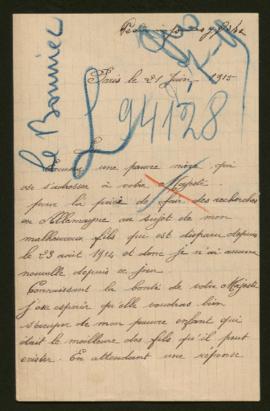 Paris le 21 Juin 1915
Le Bonniec
L
94128
une pauvre mère qui
se s'adresser à votre Majesté
pour la prier de faire des recherches
en Allemagne au sujet de mon
malheureux fils qui est disparu depuis
le 23 août 1914 et dont je n'ai aucune
nouvelle depuis ce jour
Connaissant la bonté de votre Majesté
j'ose espérer qu'elle voudras bien
s'occuper de mon pauvre enfant qui
était le meilleure des fils qu'il peut
exister. En attendant une réponse